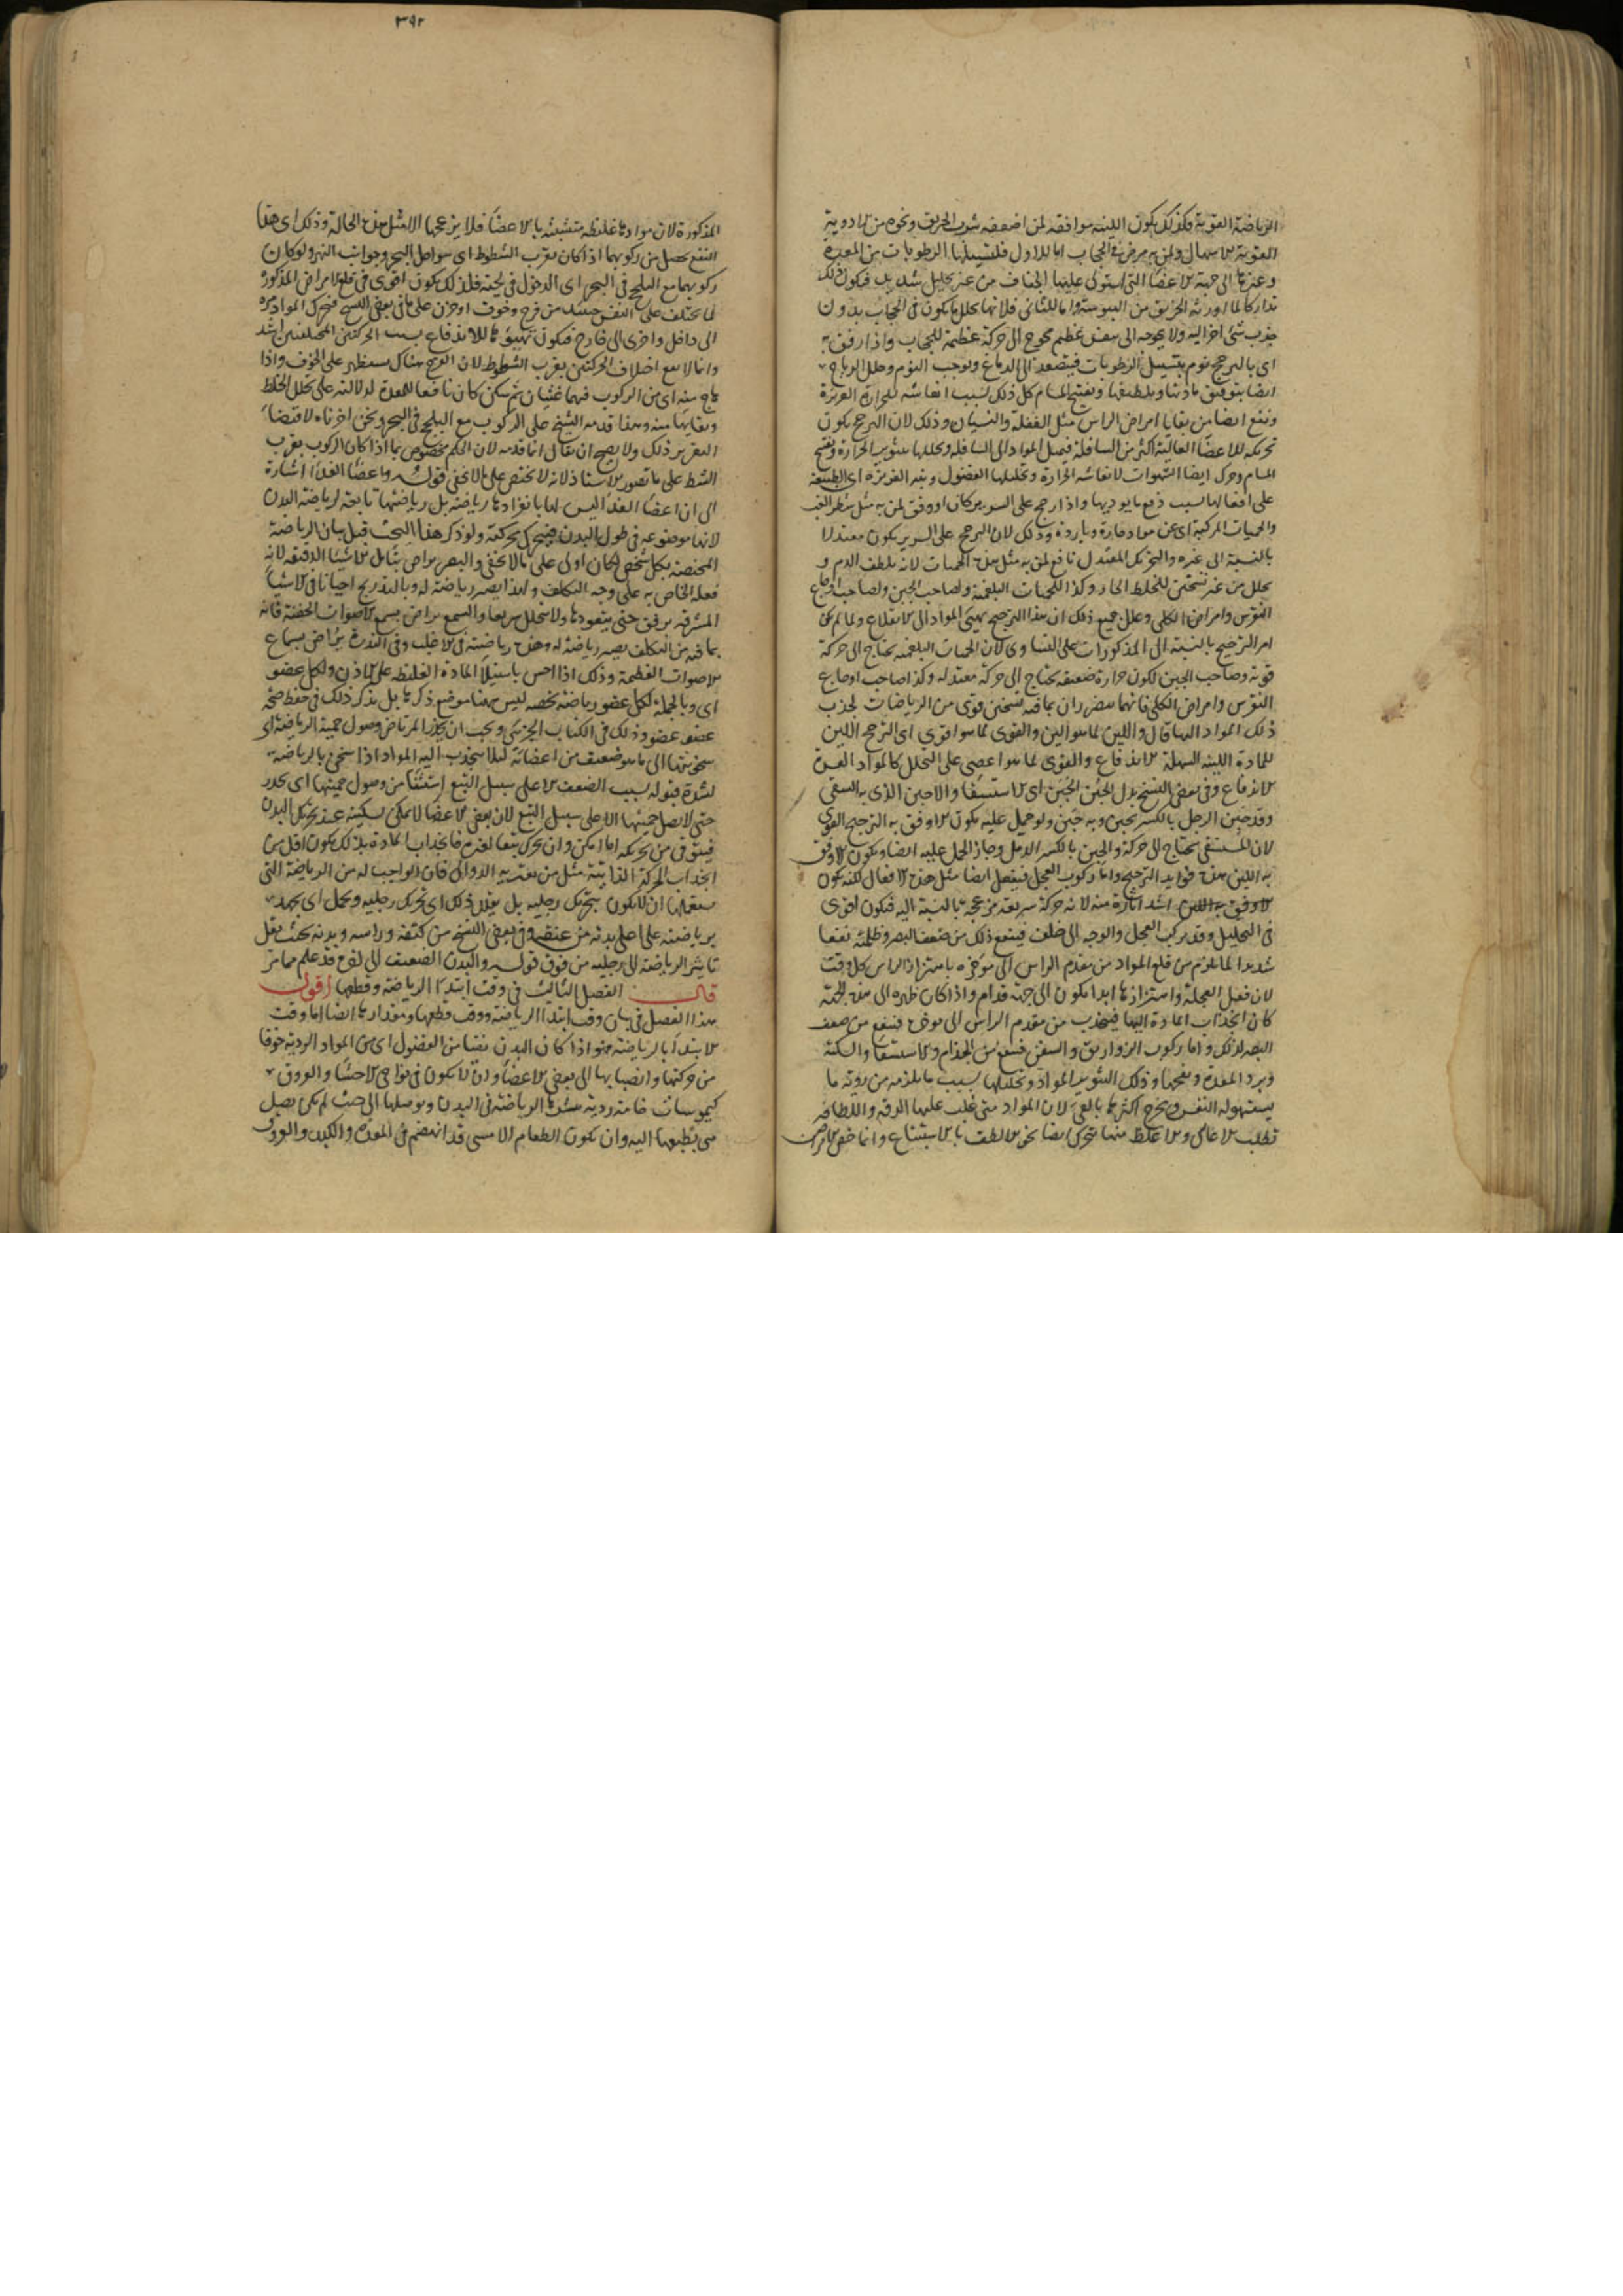 الرياضة القوية فكذلك يكون اللينه موافقة لمن اضعفه شرب الخربق ونحوه من الادوية
القوية الاسهال ولمن به مرض في الحجاب اما الاول فلتسييلها الرطوبات من المعدة
وغيرها الى جهة الاعضا التي استولى عليها الجفاف من غير تحليل شديد فيكون ذلك
تداركا لما اورثه الخربق من اليبوسة واما الثاني فلانها تحلل ما يكون في الحجاب بدون
جذب شئ اخر اليه ولا يحوجه الى نفس عظيم محوج الى حركة عظيمة للحجاب واذا رفق به
اى بالترجح نوم بتسييل الرطوبات فيتصعد الى الدماغ ويوجب النوم وحلل الرياح
ايضا بترقيق مادتها وتلطيفها وتفتيح المسام كل ذلك بسبب انعاشه للحرارة الغريزة
ونفع ايضا من بقايا امراض الراس مثل الغفلة والنسيان وذلك لان الترجح يكون
تحريكه للاعضا العالية اكثر من السافلة فيميل المواد الى السافلة ويحللها بتثوير الحرارة وتفتح
المسام وحرك ايضا الشهوات لانعاشه الحرارة وتحليلها الفضول ونبه الغريزة اى الطبيعة
على افعالها بسبب دفع ما يوذيها واذا رجح على السرير كان اوفق لمن به مثل شطر الغب
والحميات المركبة اى عن مواد حارة وباردة وذلك لان الترجح على السرير يكون معتدلا
بالنسبة الى غيره والتحريك المعتدل نافع لمن به مثل هذه الحميات لانه يلطف الدم و
يحلل من غير تسخين للخلط الحار وكذا للحميات البلغمية ولصاحب الحبن ولصاحب اوجاع
النقرس وامراض الكلى وعلل جميع ذلك ان هذا الترجيح يهيئ المواد الى الانقلاع ولما لم يكن
امر الترجيح بالنسبة الى المذكورات على التساوى لان الحميات البلغمية يحتاج الى حركة
قوية وصاحب الحبن لكون حرارة ضعيفة يحتاج الى حركة معتدلة وكذا صاحب اوجاع
النقرس وامراض الكلى فانهما يتضرران بما فيه تسخين قوى من الرياضات لجذب
ذلك المواد اليها قال واللين لما هو الين والقوى لما هو اقوى اى الترجح اللين
للمادة اللينة السهلة الاندفاع والقوى لما هو اعصى على التحلل كالمواد العسرة
الاندفاع وفى بعض النسخ بدل الحبن الحَبَن اى الاستسقا والاحبن الذى به السقى
وقد حَبِن الرجل بالكسر يحبن وبه حَبَن ولو حمل عليه يكون الاوفق به الترجيح القوى
لان المستسقى يحتاج الى حركة والحبن بالكسر الدمل وجاز الحمل عليه ايضا ويكون الاوفق
به اللين هذه فوايد الترجيح واما ركوب العجل فيفعل ايضا مثل هذه الافعال لكنه يكون
اشد اثارة منه لانه حركة سريعة مزعجة بالنسبة اليه فيكون اقوى
فى التحليل وقد يركب العجل والوجه الى خلف فينفع ذلك من ضعف البصر وظلمته نفعا
شديدا لما يلزم من قلع المواد من مقدم الراس الى مؤخره باهتزاز الراس كل وقت
لان فعل العجلة واهتزازها ابدا يكون الى جهة قدام واذا كان ظهره الى هذه الجهة
كان انجذاب المادة اليها فينجذب من مقدم الراس الى موخره فينفع من ضعف
البصر لذلك واما ركوب الزواريق والسفن فينفع من الجذام والاستسقا والسكتة
وبرد المعدة ونفخها وذلك لتثوير المواد وتحليلها بسبب ما يلزمه من روية ما
يستهوله النفس ويخرج اكثرها بالقى لان المواد متى غلب عليها الرقة واللطافة
تطلب الاعالى والاغلظ منها يتحرك ايضا نحو الالطف بالاستتباع وانما خص الامراض
٣٩٢
المذكورة لان موادها غليظة متشبثة بالاعضا فلا يزعجها الا مثل هذه الحالة وذلك اى هذا
النفع يحصل من ركوبهما اذا كان بقرب الشطوط اى سواحل البحر وجوانب النهر ولو كان
ركوبهما مع التلجيج فى البحر اى الدخول فى لجته فلذلك يكون اقوى فى قلع الامراض المذكورة
لما يختلف على النفس حينئذ من فرح وخوف او حزن على ما فى بعض النسخ فيحرك المواد مرة
الى داخل واخرى الى خارج فيكون تهييؤها للاندفاع بسبب الحركتين المختلفتين اشد
وانما لا يقع اختلاف الحركتين بقرب الشطوط لان الفرح هناك يستظهر على الخوف واذا
هاج منه اى من الركوب فيهما غثيان ثم سكن كان نافعا للمعدة لدلالته على تحلل الخلط
ونقائها منه ولهذا قدمه الشيخ على الركوب مع التلجيج فى البحر ونحن اخرناه لاقتضا
التقرير ذلك ولا يصح ان يقال انما قدمه لان الحكم مخصوص بما اذا كان الركوب بقرب
الشط على ما تصور الاستاذ لانه لا يختص على ما لا يخفى قوله واعضا الغذا اشارة
الى ان اعضا الغذا ليس لها بانفرادها رياضة بل رياضتها تابعة لرياضة البدن
لانها موضوعه فى طول البدن فيتحرك بحركته ولو ذكر هذا البحث قبل بيان الرياضة
المختصة بكل شخص لكان اولى على ما لا يخفى والبصر يراض بتامل الاشيا الدقيقة لانه
فعله الخاص به على وجه التكلف ولهذا يصير رياضة له وبالتدريج احيانا فى الاشيا
المشرقة برفق حتى يتعودها ولا يتحلل سريعا والسمع يراض بسمع الاصوات الخفية فانه
بما فيه من التكلف يصير رياضة له وهذه رياضته فى الاغلب وفى الندرة يراض بسماع
الاصوات العظيمة وذلك اذا احس باستيلا المادة الغليظة على الاذن ولكل عضو
اى وبالجملة لكل عضو رياضة تخصه ليس هنا موضع ذكرها بل يذكر ذلك فى حفظ صحة
عضو عضو وذلك فى الكتاب الجزئى ويجب ان يحذر المرتاض وصول حمية الرياضة اى
سخونتها الى ما هو ضعيف من اعضائه لئلا ينجذب اليه المواد اذا سخن بالرياضة
لشدة قبوله بسبب الضعف الا على سبيل التبع استثنا من وصول حميتها اى يحذر
حتى لا يصل حميتها الا على سبيل التبع لان بعض الاعضا لا يمكن تسكينه عند تحريك البدن
فيتوقى من تحريكه اما امكن وان تحرك تبعا لغيره فانجذاب المادة بذلك يكون اقل من
انجذاب الحركة الذاتية مثل من يعتريه الدوالى فان الواجب له من الرياضة التى
يستعملها ان لا يكون بتحريك رجليه بل يقلل ذلك اى تحريك رجليه ويحمل اى يجهد
برياضته على اعلى بدنه من عنقه وفى بعض النسخ من كتفه وراسه ويديه بحيث يقل
تاثير الرياضة الى رجليه من فوق قوله والبدن الضعيف الى اخره قد علم مما مر
قال الفصل الثالث فى وقت ابتدا الرياضة وقطعها اقول
هذا الفصل فى بيان وقت ابتدا الرياضة ووقت قطعها ومقدارها ايضا اما وقت
الابتدا بالرياضة فهو اذا كان البدن نقيا من الفضول اى من المواد الردية خوفا
من حركتها وانصبابها الى بعض الاعضا وان لا يكون فى نواحى الاحشا والعروق
كيموسات خامة ردية ينشرها الرياضة فى البدن ويوصلها الى حيث لم يكن يصل
هى بطبعها اليه وان يكون الطعام الامسى قد انهضم فى المعدة والكبد والعروق